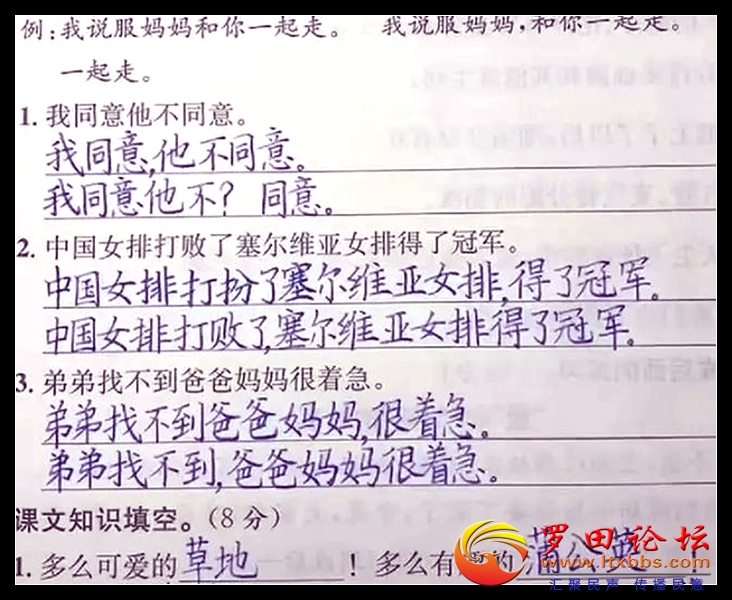 例:我说服妈妈和你一起走。 我说服妈妈,和你一起走。
一起走。
1. 我同意他不同意。
我同意,他不同意。
我同意他不? 同意。
2. 中国女排打败了塞尔维亚女排得了冠军。
中国女排打扮了塞尔维亚女排,得了冠军。
中国女排打败了,塞尔维亚女排得了冠军。
3. 弟弟找不到爸爸妈妈很着急。
弟弟找不到爸爸妈妈,很着急。
弟弟找不到,爸爸妈妈很着急。
课文知识填空。(8 分)
1. 多么可爱的草地! 多么有的蒲公英!
罗田论坛
www.ltxbbs.com
汇聚民声 传播民意